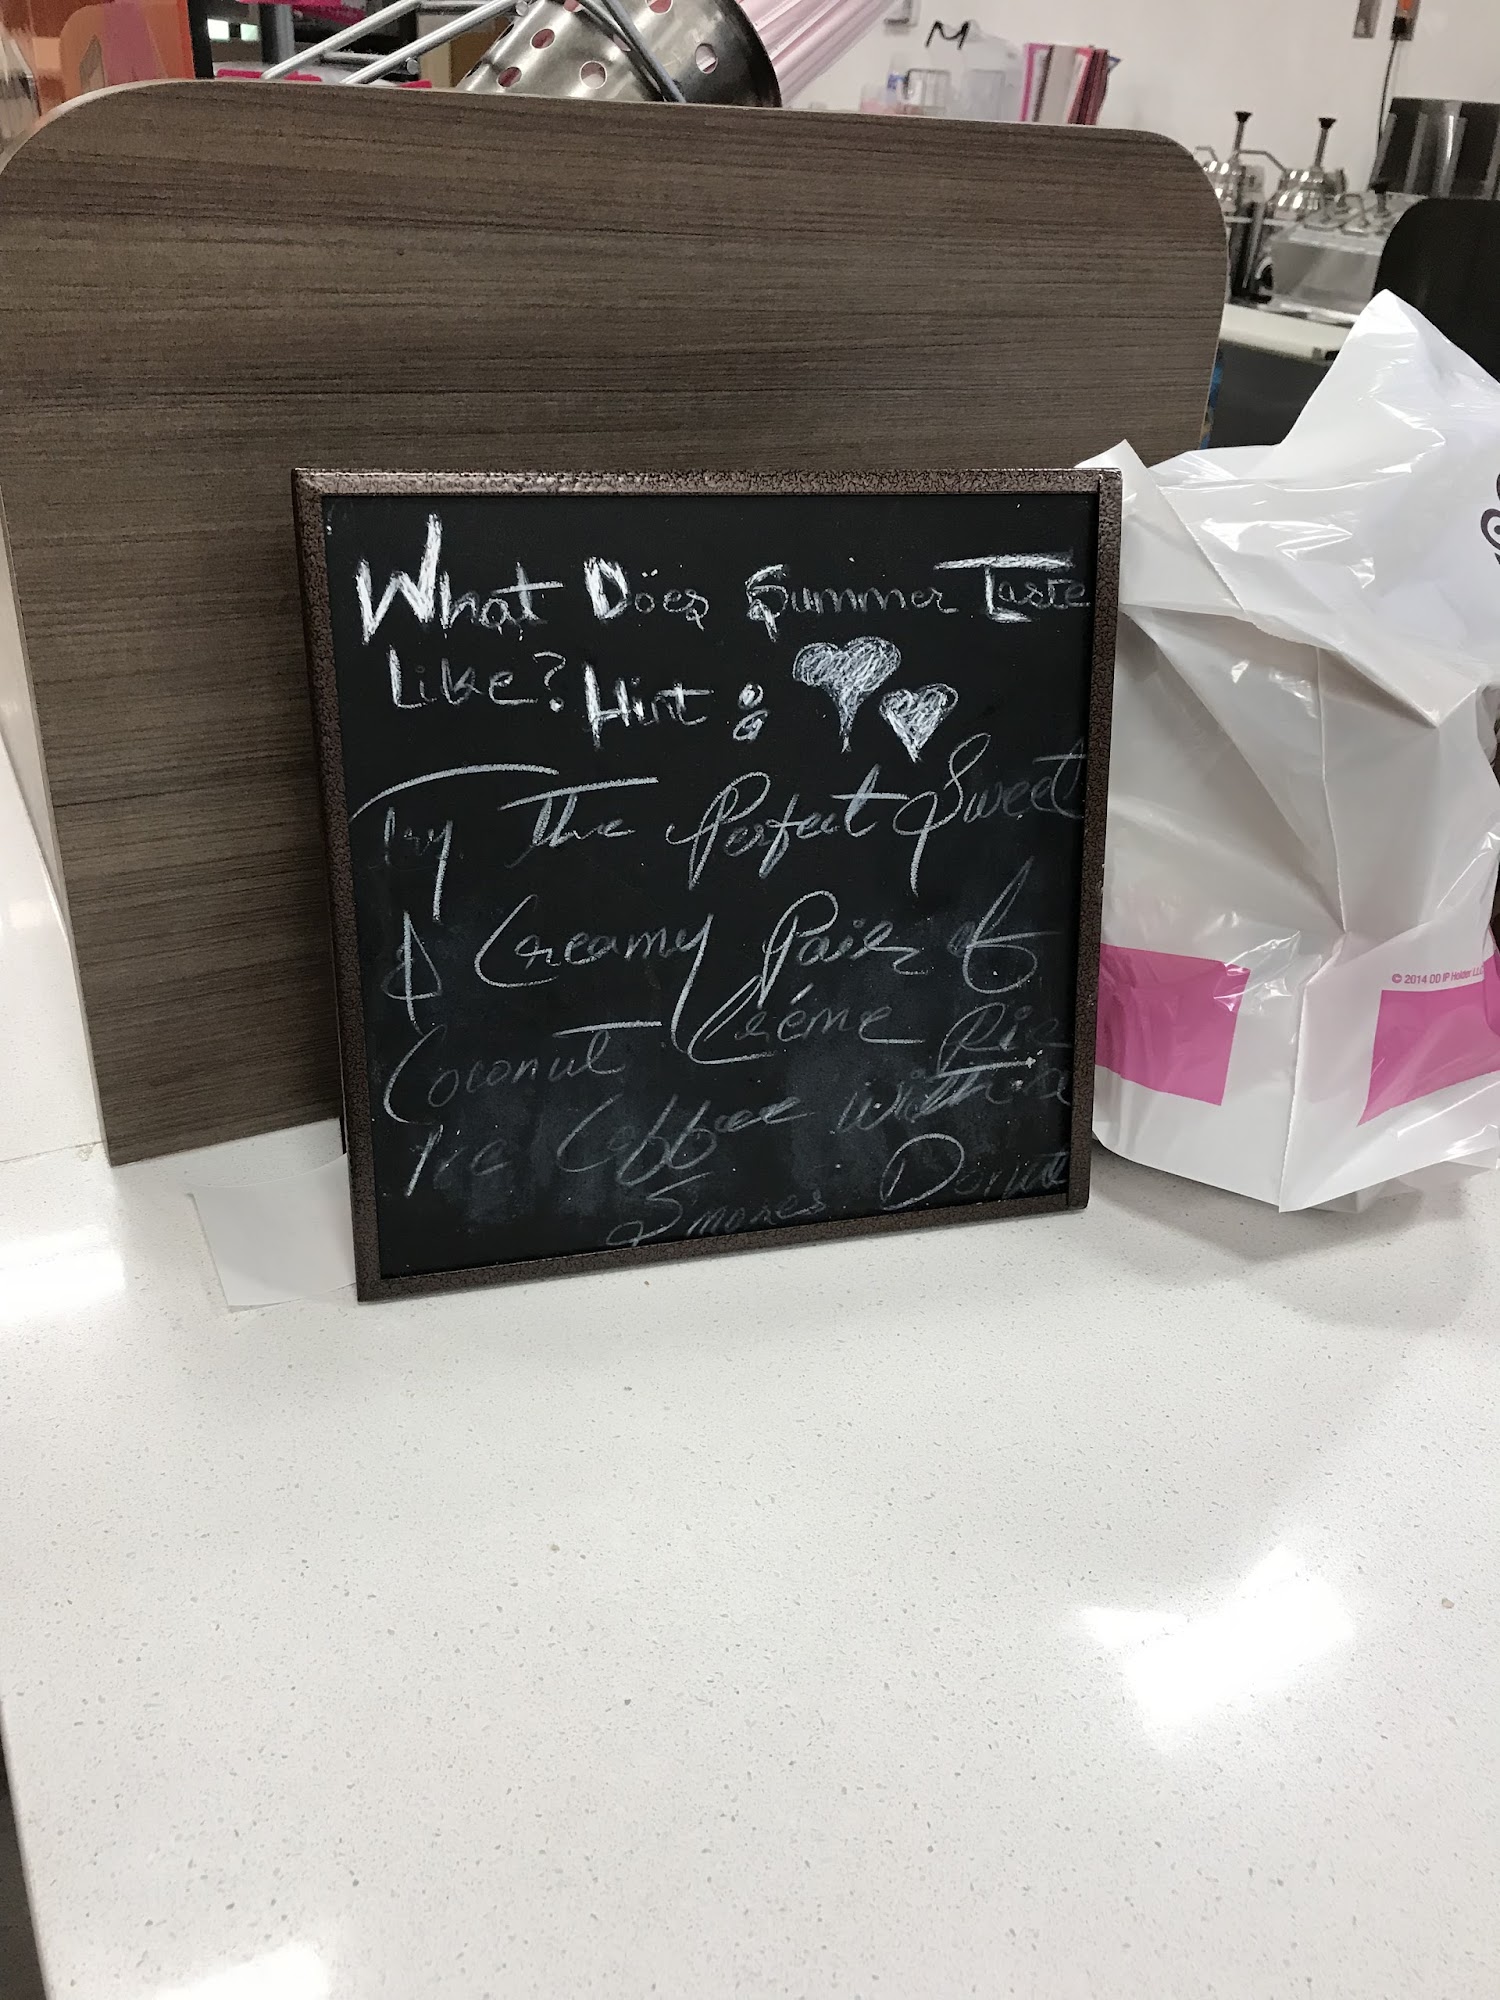 What Does Summer Taste
Like? Hint :
Try The Perfect Sweet
& Creamy Pair of
Coconut Créme Pie
Ice Coffee With a
Smores Donut
© 2014 DD IP Holder LLC